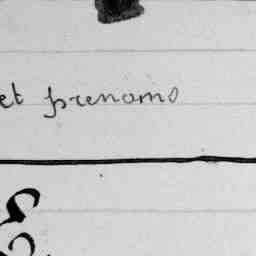 et prenoms